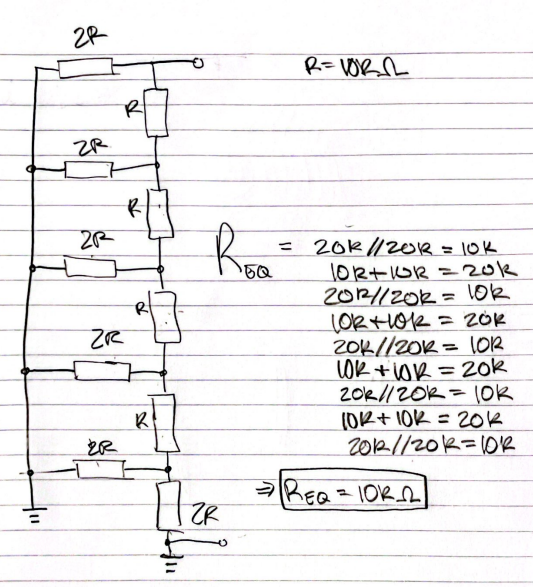 2R
R = 10kΩ
R
2R
R
2R
R
2R
R
2R
2R
REQ = 20k//20k = 10k
10k+10k = 20k
20k//20k = 10k
10k+10k = 20k
20k//20k = 10k
10k+10k = 20k
20k//20k = 10k
10k+10k = 20k
20k//20k=10k
⇒ REQ = 10kΩ